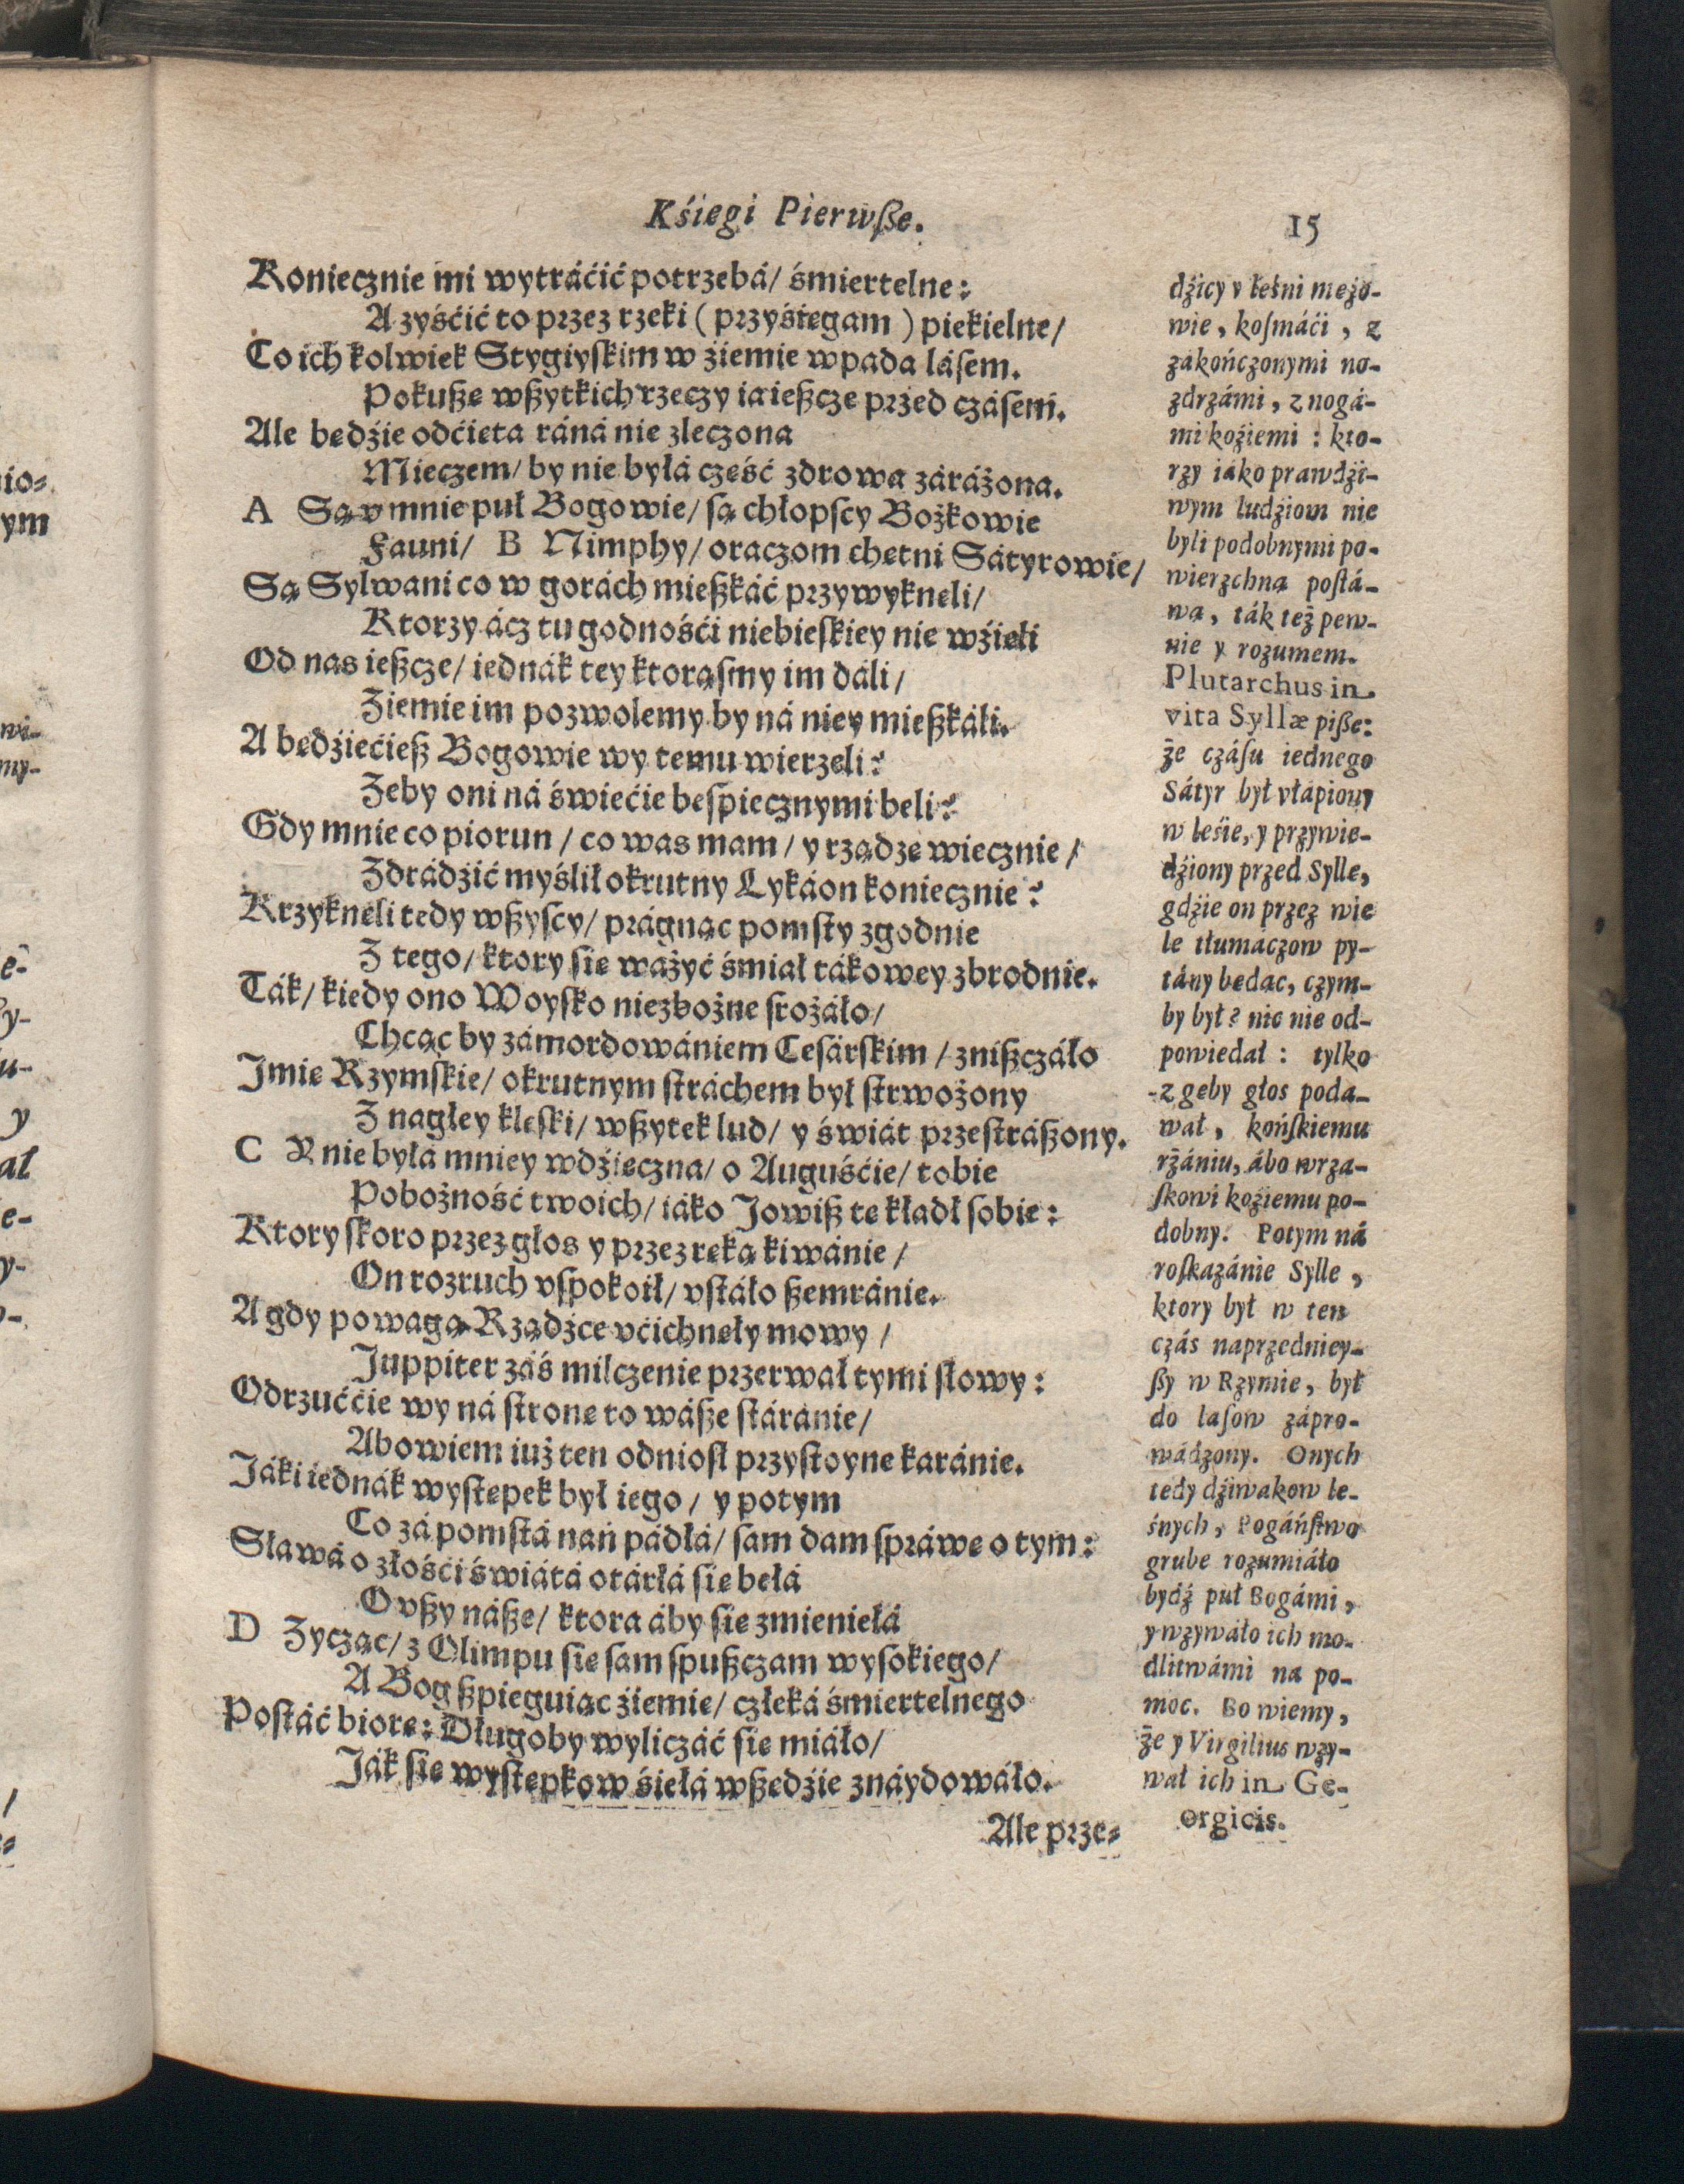 Kśiegi Pierwße.
15
Koniecznie mi wytráćić potrzebá/ śmiertelne:
A zyśćić to przez rzeki (przyśiegam) piekielne/
Co ich kolwiek Stygiyſkim w źiemie wpada láſem.
Pokuße wßytkich rzeczy ia ießcze przed czáſem.
Ale bedźie odćieta ráná nie zleczona
Mieczem/ by nie byłá cześć zdrowa záráżona.
A Są v mnie puł Bogowie/ ſą chłopſcy Bożkowie
Fauni/ B Nimphy/ oraczom chetni Sátyrowie/
Są Sylwani co w gorách mießkáć przywykneli/
Ktorzy ácz tu godnośći niebieſkiey nie wźieli
Od nas ießcze/ iednák tey ktorąſmy im dáli/
Ziemie im pozwolemy by ná niey mießkáli.
A bedźiećieß Bogowie wy temu wierzeli?
Zeby oni ná świećie beſpiecznymi beli?
Gdy mnie co piorun/ co was mam/ y rządze wiecznie/
Zdrádźić myślił okrutny Lykáon koniecznie?
Krzykneli tedy wßyſcy/ prágnąc pomſty zgodnie
Z tego/ ktory ſie ważyć śmiał tákowey zbrodnie.
Ták/ kiedy ono Woyſko niezbożne ſrożáło/
Chcąc by zámordowániem Ceſárſkim/ znißczáło
Imie Rzymſkie/ okrutnym ſtráchem był ſtrwożony
Z nagłey kleſki/ wßytek lud/ y świát przeſtráßony.
C Y nie byłá mniey wdźieczna/ o Auguśćie/ tobie
Pobożność twoich/ iáko Jowiß te kładł ſobie:
Ktory ſkoro przez głos y przez reką kiwánie/
On rozruch vſpokoił/ vſtáło ßemránie.
A gdy powagą Rządźce vćichneły mowy/
Juppiter záś milczenie przerwał tymi słowy:
Odrzuććie wy ná ſtrone to wáße ſtáránie/
Abowiem iuż ten odniosł przyſtoyne karánie.
Jáki iednák wyſtepek był iego/ y potym
Co zá pomſtá nań pádłá/ ſam dam ſpráwe o tym:
Sławá o złośći świátá otárłá ſie bełá
O vßy náße/ ktora áby ſie zmieniełá
D Zycząc/ z Olimpu ſie ſam ſpußczam wyſokiego/
A Bog ßpieguiąc źiemie/ człeká śmiertelnego
Poſtáć biore: Długoby wyliczáć ſie miáło/
Ják ſie wyſtepkow śiełá wßedźie znáydowáło.
Ale prze-
dźicy y leśni meżo-
wie, koſmáći, z
zákończonymi no-
zdrzámi, z nogá-
mi koźiemi: kto-
rzy iáko prawdźi-
wym ludźiom nie
byli podobnymi po-
wierzchną poſtá-
wą, ták też pew-
nie y rozumem.
Plutarchus in
vita Syllæ piße:
że czáſu iednego
Sátyr był vłápiony
w leśie, y przywie-
dźiony przed Sylle,
gdźie on przez wie
le tłumaczow py-
tány bedac, czym-
by był? nic nie od-
powiedał: tylko
z geby głos poda-
wał, końſkiemu
rżániu, ábo wrza-
ſkowi koźiemu po-
dobny. Potym ná
roſkazánie Sylle,
ktory był w ten
czás naprzedniey-
ßy w Rzymie, był
do laſow zápro-
wádzony. Onych
tedy dźiwakow le-
śnych, Pogáńſtwo
grube rozumiáło
bydź puł Bogámi,
y wzywáło ich mo-
dlitwámi na po-
moc. Bo wiemy,
że y Virgilius wzy-
wał ich in Ge-
orgicis.